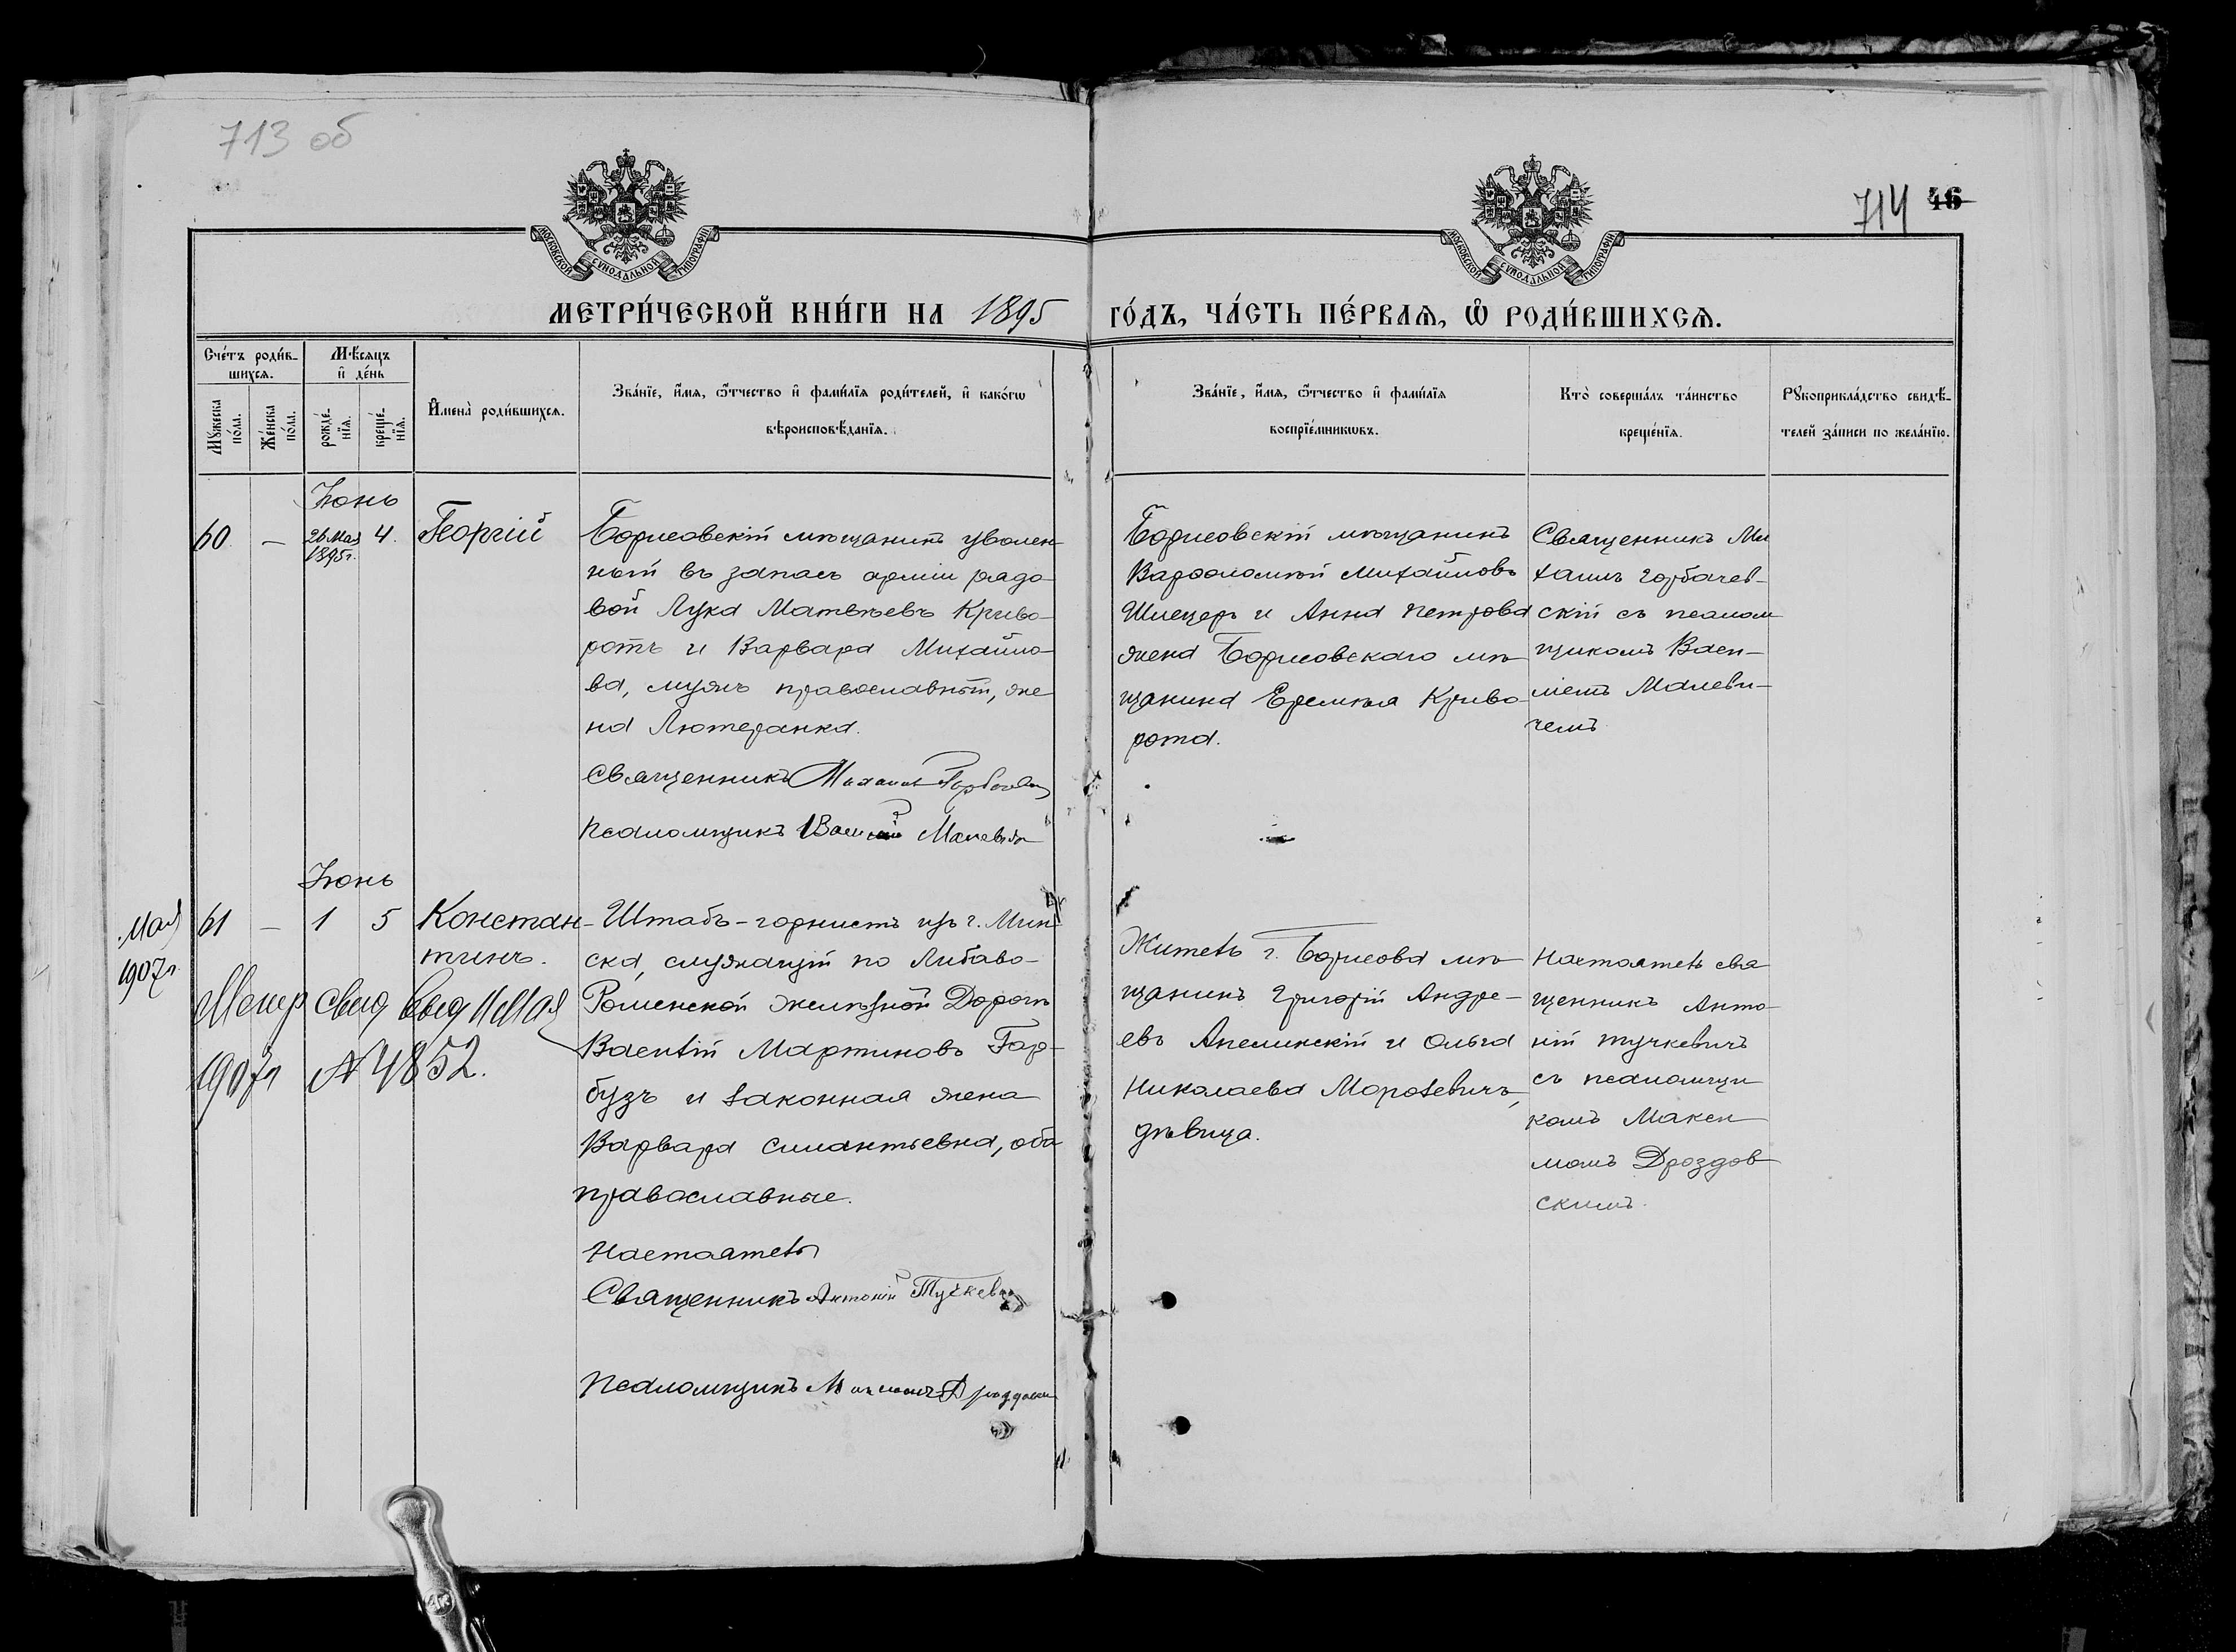 713 об
714 46
МОСКОВСКОЙ СѴНОДАЛЬНОЙ ТИПОГРАФІИ
МОСКОВСКОЙ СѴНОДАЛЬНОЙ ТИПОГРАФІИ
МЕТРИ́ЧЕСКОЙ КНИ́ГИ НА 1895
ГО́ДЪ, ЧА́СТЬ ПЕ́РВАѦ, Ѡ РОДИ́ВШИХСѦ.
Сче́тъ роди́в-
шихсѧ.
Мѣсѧцъ
и де́нь
Мꙋжеска
по́ла.
Же́нска
по́ла.
рожде́-
нїѧ.
креще́-
нїѧ.
Имена̀ роди́вшихсѧ.
Зва́нїе, и́мѧ, ѻ҆́тчество и фами́лїѧ роди́телей, и како́гѡ
вѣроисповѣ́данїѧ.
Зва́нїе, и́мѧ, ѻ҆́тчество и фами́лїѧ
воспрїе́мникѡвъ.
Кто̀ соверша́лъ та́инство
креще́нїѧ.
Рꙋкоприкла́дство свидѣ́-
телей за́писи по жела́нїю.
Іюнь
60 — 26 Мая 4. Георгій
1895 г.
Борисовскій мѣщанинъ уволен-
ный въ запасъ арміи рядо-
вой Лука Матвѣевъ Криво-
ротъ и Варвара Михайло-
ва, мужъ православный, же-
на Лютеранка.
Священникъ Михаилъ Горбачевскій
Псаломщикъ Василій Малевичъ
Борисовскій мѣщанинъ
Варѳоломей Михайловъ
Шлецеръ и Анна Петрова
жена Борисовскаго мѣ-
щанина Еремѣя Криво-
рота.
Священникъ Ми
хаилъ Горбачев-
скій съ псалом
щикомъ Васи-
ліемъ Малеви-
чемъ
Іюнь
Мая
1907 г.
61 — 1 5 Констан-
тинъ.
Метр свид выд 11 Мая
1907 г № 4852.
Штабъ-горнистъ изъ г. Мин-
ска, служащій по Либаво-
Роменской желѣзной Дорогѣ
Василій Мартиновъ Гар-
бузъ и законная жена
Варвара Силантьевна, оба
православные.
Настоятель
Священникъ Антоній Тучкевичъ
Псаломщикъ Максимъ Дроздовскій
Житель г. Борисова мѣ-
щанинъ Григорій Андре-
евъ Апелинскій и Ольга
Николаева Морозевичъ,
дѣвица.
Настоятель свя
щенникъ Анто-
ній Тучкевичъ
съ псаломщи
комъ Макси
момъ Дроздов
скимъ.